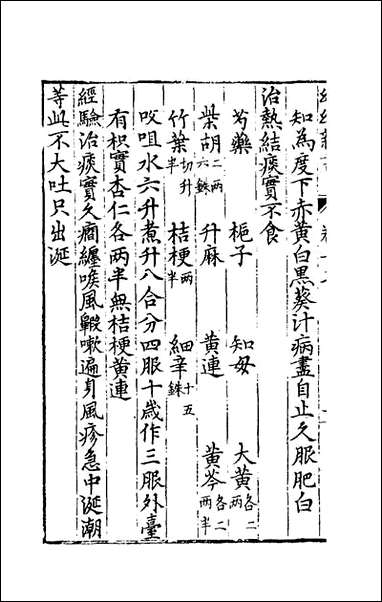 知為度下赤黃白黑葵汁病盡自止久服肥白
治熱結痰實不食
芍藥　梔子　知母　大黃各二兩
柴胡二兩六銖　升麻　黃連　黃芩各二兩半
竹葉切升半　桔梗兩半　細辛十五銖
㕮咀水六升煮升八合分四服十歲作三服外臺
有枳實杏仁各兩半無桔梗黃連
經驗治痰實久痼纏喉風齁嗽遍身風疹急中涎潮
等此不大吐只出涎